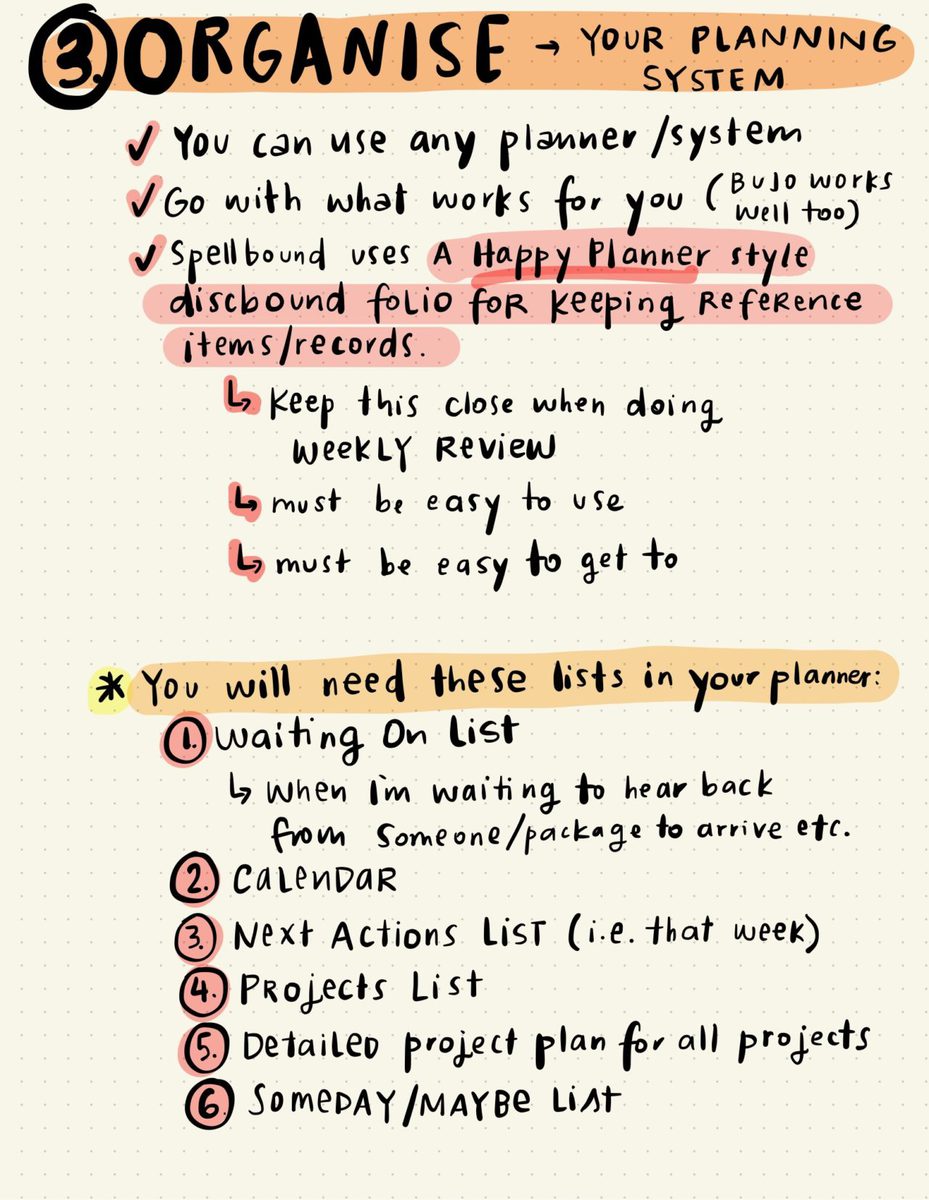 3. ORGANISE → YOUR PLANNING
SYSTEM
✓ You can use any planner/system
✓ Go with what works for you (BUJO works
well too)
✓ Spellbound uses A Happy Planner style
discbound folio for keeping Reference
items/records.
↳ Keep this close when doing
WEEKLY REVIEW
↳ must be easy to use
↳ must be easy to get to
* You will need these lists in your planner:
1. Waiting On List
↳ When I'm waiting to hear back
from someone/package to arrive etc.
2. CALENDAR
3. Next Actions List (i.e. that week)
4. Projects List
5. Detailed project plan for all projects
6. SOMEDAY/MAYBE LIST